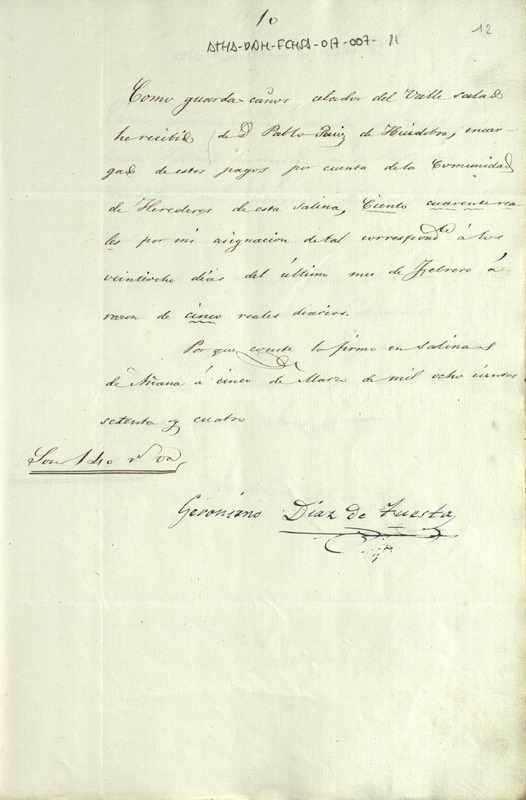 10
12
ATHA-DAH-FCHSA-017-007-11
Como guarda-caños celador del Valle salad
he recibid de D Pablo Ruiz de Huidobro, encar
gad de estos pagos por cuenta de la Comunidad
de Herederos de esta Salina, Ciento cuarenta rea
les por mi asignacion de tal correspond.te á los
veintiocho dias del último mes de Febrero á
razon de cinco reales diarios.
Por que conste lo firmo en Salinas
de Añana á cinco de Marzo de mil ocho cientos
setenta y cuatro
Son 140 r.s v.n
Geronimo Díaz de Tuesta